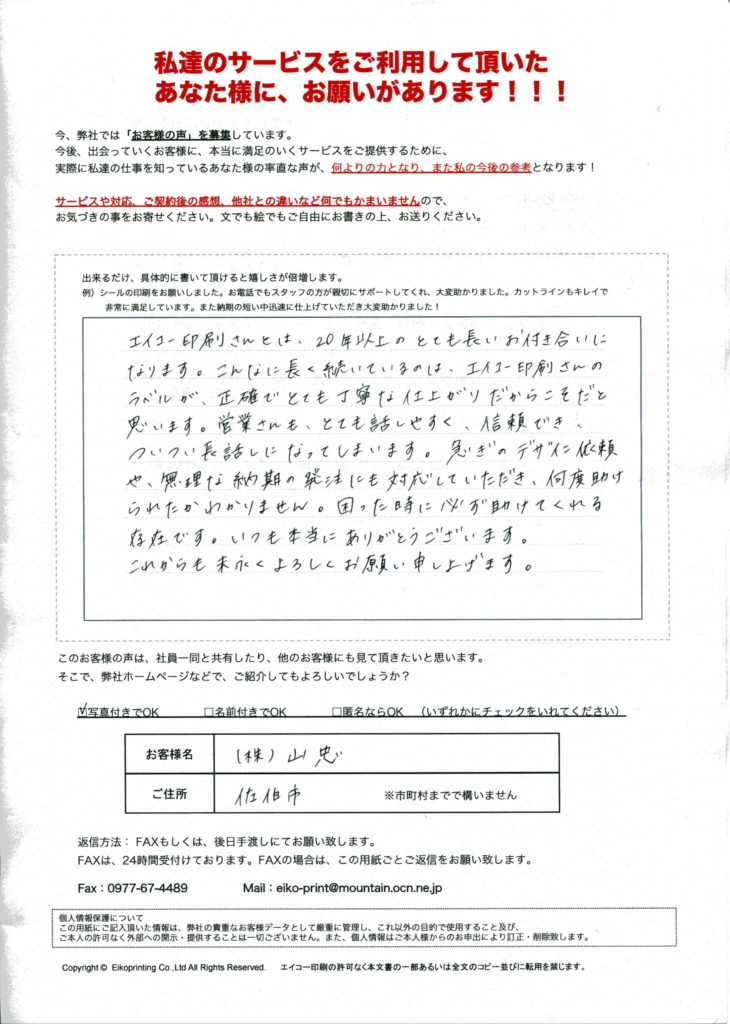 私達のサービスをご利用して頂いた
あなた様に、お願いがあります！！！
今、弊社では「お客様の声」を募集しています。
今後、出会っていくお客様に、本当に満足のいくサービスをご提供するために、
実際に私達の仕事を知っているあなた様の率直な声が、何よりの力となり、また私の今後の参考となります！
サービスや対応、ご契約後の感想、他社との違いなど何でもかまいませんので、
お気づきの事をお寄せください。文でも絵でもご自由にお書きの上、お送りください。
出来るだけ、具体的に書いて頂けると嬉しさが倍増します。
例）シールの印刷をお願いしました。お電話でもスタッフの方が親切にサポートしてくれ、大変助かりました。カットラインもキレイで
非常に満足しています。また納期の短い中迅速に仕上げていただき大変助かりました！
エイコー印刷さんとは、20年以上のとても長いお付き合いに
なります。こんなに長く続いているのは、エイコー印刷さんの
ラベルが、正確でとても丁寧な仕上がりだからこそだと
思います。営業さんも、とても話しやすく、信頼でき、
ついつい長話しになってしまいます。急ぎのデザイン依頼
や、無理な納期の発注にも対応していただき、何度助け
られたかわかりません。困った時に必ず助けてくれる
存在です。いつも本当にありがとうございます。
これからも末永くよろしくお願い申し上げます。
このお客様の声は、社員一同と共有したり、他のお客様にも見て頂きたいと思います。
そこで、弊社ホームページなどで、ご紹介してもよろしいでしょうか？
☑写真付きでOK □名前付きでOK □匿名ならOK （いずれかにチェックをいれてください）
お客様名 （株）山忠
ご住所 佐伯市 ※市町村までで構いません
返信方法： FAXもしくは、後日手渡しにてお願い致します。
FAXは、24時間受付けております。FAXの場合は、この用紙ごとご返信をお願い致します。
Fax：0977-67-4489 Mail：eiko-print@mountain.ocn.ne.jp
個人情報保護について
この用紙にご記入頂いた情報は、弊社の貴重なお客様データとして厳重に管理し、これ以外の目的で使用すること及び、
ご本人の許可なく外部への開示・提供することは一切ございません。また、個人情報はご本人様からのお申出により訂正・削除致します。
Copyright © Eikoprinting Co.,Ltd All Rights Reserved. エイコー印刷の許可なく本文書の一部あるいは全文のコピー並びに転用を禁じます。